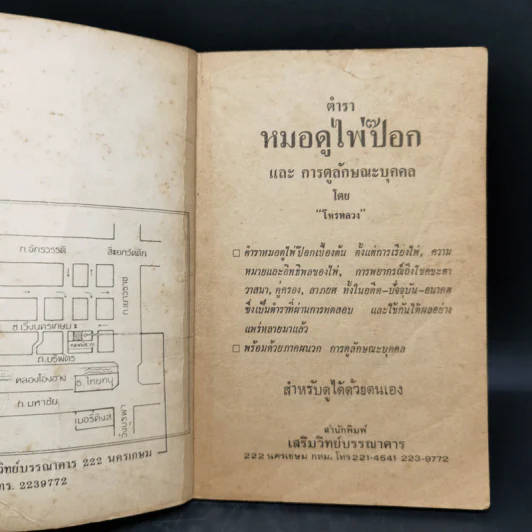 ถ.จักรวรรดิ
สี่แยกวัดตึก
ถ.เยาวราช
ซ.เวิ้งนครเกษม
ถ.บริพัตร
คลองโอ่งอ่าง
ธ.ไทยทนุ
ถ.มหาไชย
เมอร์รี่คิงส์
วังบูรพา
วิทย์บรรณาคาร 222 นครเกษม
ทร. 2239772
ตำรา
หมอดูไพ่ป๊อก
และ การดูลักษณะบุคคล
โดย
"โหรหลวง"
□ ตำราหมอดูไพ่ป๊อกเบื้องต้น ตั้งแต่การเรียงไพ่, ความ
หมายและอิทธิพลของไพ่, การพยากรณ์ถึงโชคชะตา
วาสนา, คู่ครอง, ลาภยศ ทั้งในอดีต-ปัจจุบัน-อนาคต
ซึ่งเป็นตำราที่ผ่านการทดสอบ และใช้กันได้ผลอย่าง
แพร่หลายมาแล้ว
□ พร้อมด้วยภาคผนวก การดูลักษณะบุคคล
สำหรับดูได้ด้วยตนเอง
สำนักพิมพ์
เสริมวิทย์บรรณาคาร
222 นครเกษม กทม. โทร 221-4541 223-9772